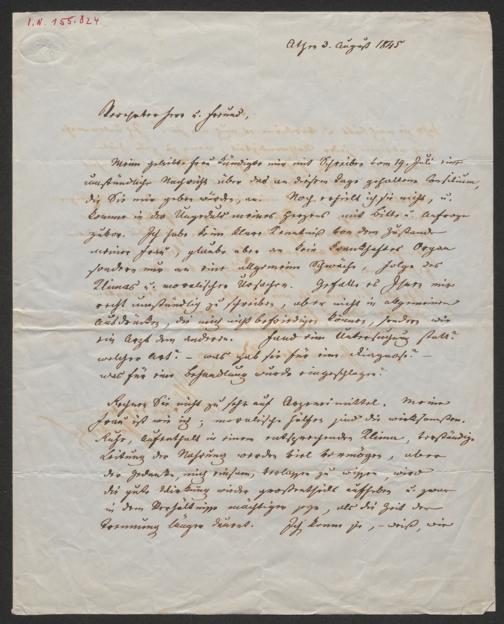 I.N. 155.824
Athen 3. August 1845
Verehrter Herr u. Freund,
Meine geliebte Frau kündigte mir mit Schreiben vom 19. Juli eine
umständliche Nachricht über das an diesem Tage gehaltene Consilium,
die Sie mir geben würden, an. Noch erhielt ich sie nicht, u.
komme in der Ungeduld meines Herzens mit Bitte u. Anfrage
zuvor. Ich habe keine klare Kenntniß von dem Zustande
meiner Frau, glaube aber an kein krankhaftes Organ
sondern nur an eine allgemeine Schwäche, Folge des
Klimas u. moralischer Ursachen. Gefalle es Ihnen mir
recht umständig zu schreiben, aber nicht in allgemeinen
Ausdrücken, die mich nicht befriedigen können, sondern wie
ein Arzt dem anderen. Fand eine Untersuchung statt?
welcher Art? – was gab sie für eine Diagnose? –
was für eine Behandlung wurde eingeschlagen?
Rechnen Sie nicht zu sehr auf Arzneimittel. Meine
Frau ist wie ich; moralische Hülfen sind die wirksamsten.
Ruhe, Aufenthalt in einem entsprechenden Klima, verständige
Leitung der Nahrung werden viel vermögen, aber
der Gedanke, mich einsam, verlassen zu wissen, wird
die gute Wirkung wieder großentheils aufheben u. zwar
in dem Verhältnisse mächtiger, als die Zeit der
Trennung länger dauert. Ich kenne sie, – weiß, wie